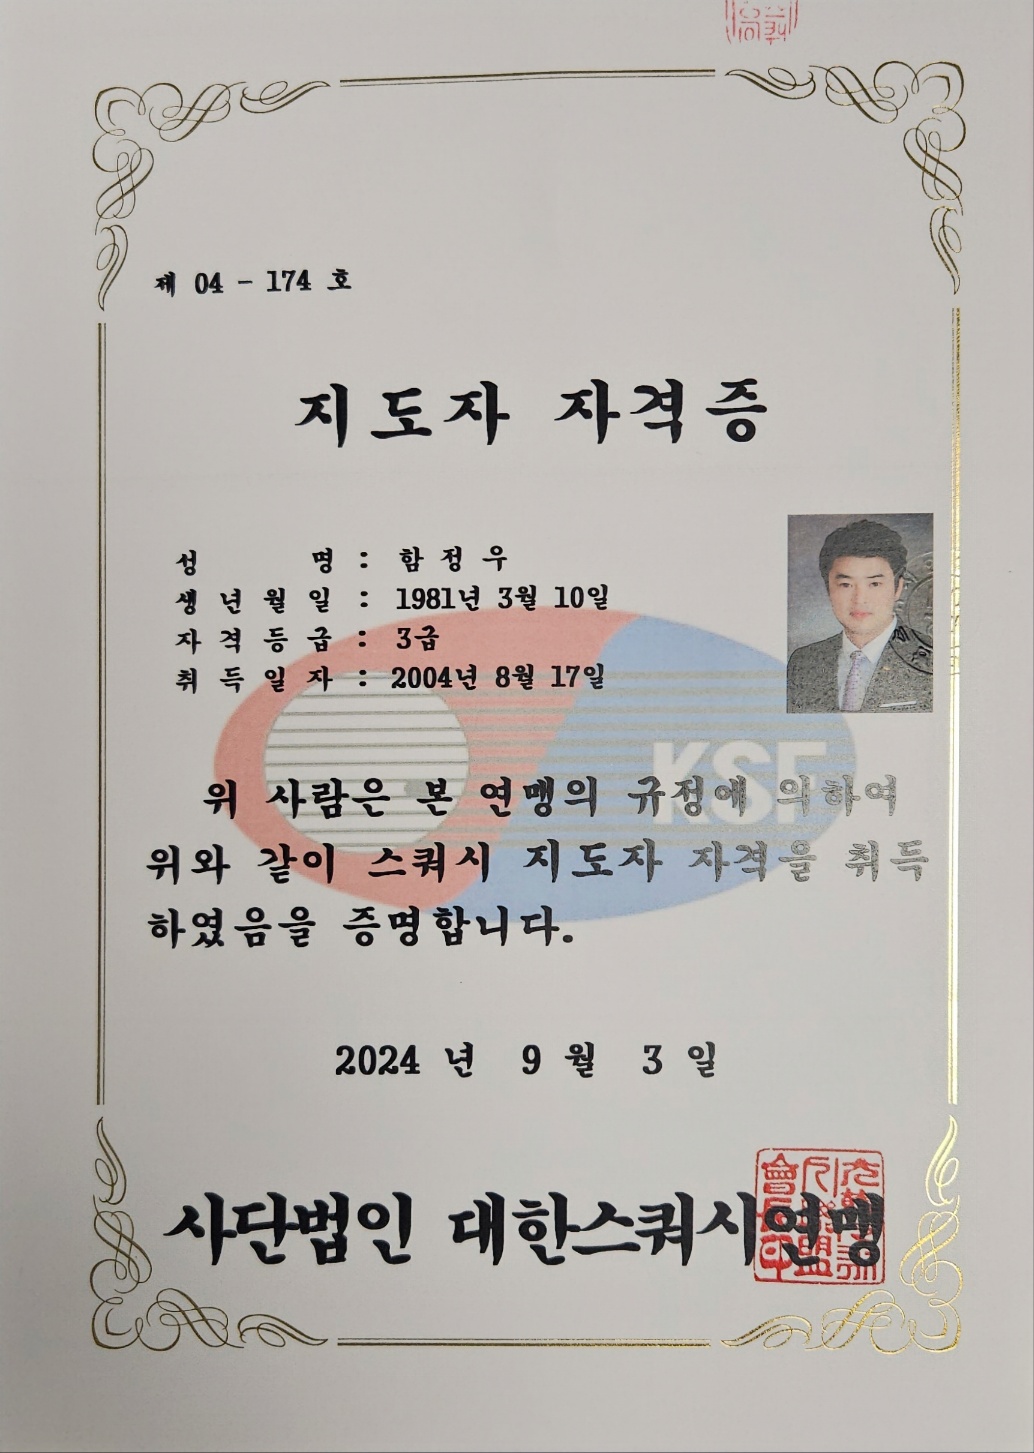 제 04 - 174 호
지도자 자격증
성 명 : 함 정 우
생 년 월 일 : 1981년 3월 10일
자 격 등 급 : 3급
취 득 일 자 : 2004년 8월 17일
KSF
위 사람은 본 연맹의 규정에 의하여
위와 같이 스쿼시 지도자 자격을 취득
하였음을 증명합니다.
2024 년 9 월 3 일
사단법인 대한스쿼시연맹